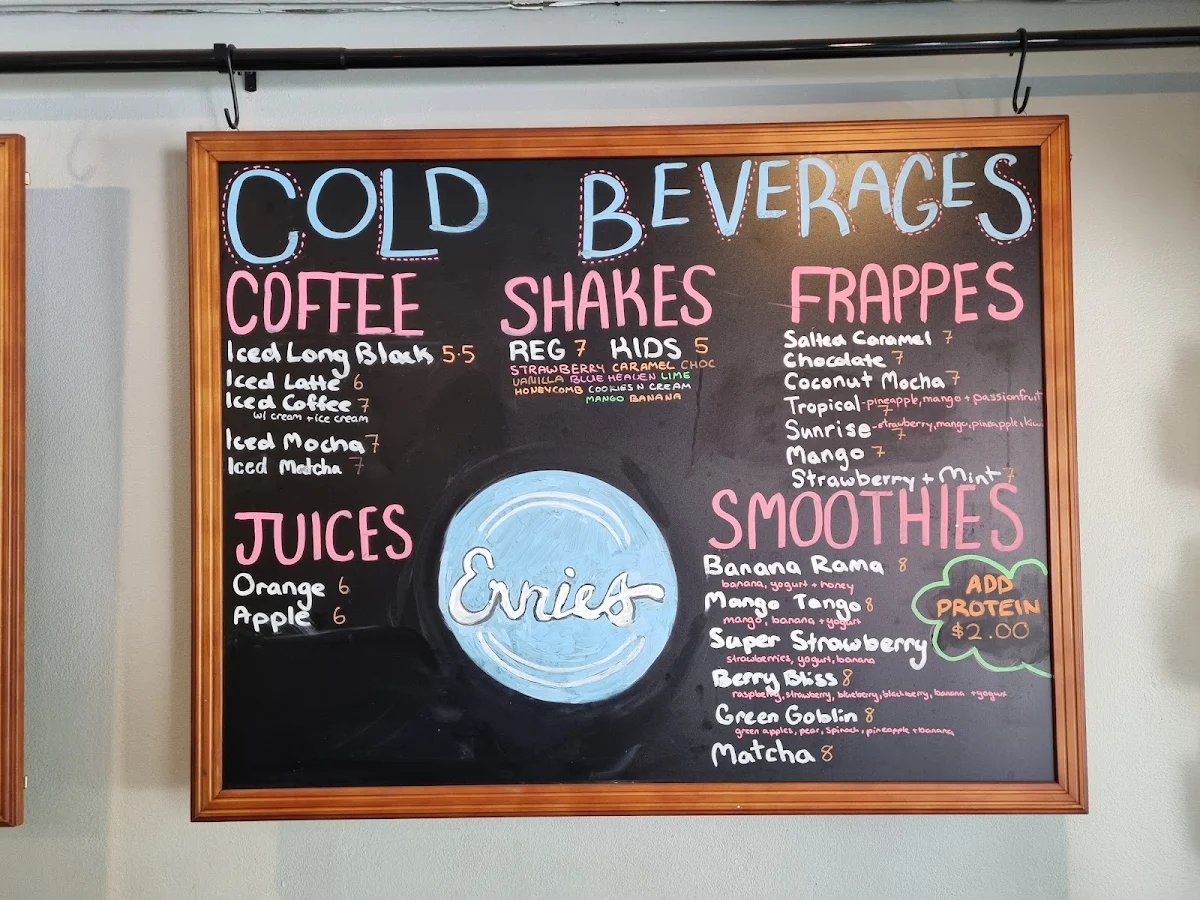 COLD BEVERAGES
COFFEE
Iced Long Black 5.5
Iced Latte 6
Iced Coffee 7
w/ cream + ice cream
Iced Mocha 7
Iced Matcha 7
JUICES
Orange 6
Apple 6
SHAKES
REG 7 KIDS 5
STRAWBERRY CARAMEL CHOC
VANILLA BLUE HEAVEN LIME
HONEYCOMB COOKIES N CREAM
MANGO BANANA
Ernies
FRAPPES
Salted Caramel 7
Chocolate 7
Coconut Mocha 7
Tropical - pineapple, mango + passionfruit
7
Sunrise - strawberry, mango, pineapple + kiw
7
Mango 7
Strawberry + Mint 7
SMOOTHIES
Banana Rama 8
banana, yogurt + honey
Mango Tango 8
mango, banana + yogurt
Super Strawberry
strawberries, yogurt, banana
Berry Bliss 8
raspberry, strawberry, blueberry, blackberry, banana + yogurt
Green Goblin 8
green apples, pear, spinach, pineapple + banana
Matcha 8
ADD
PROTEIN
$2.00